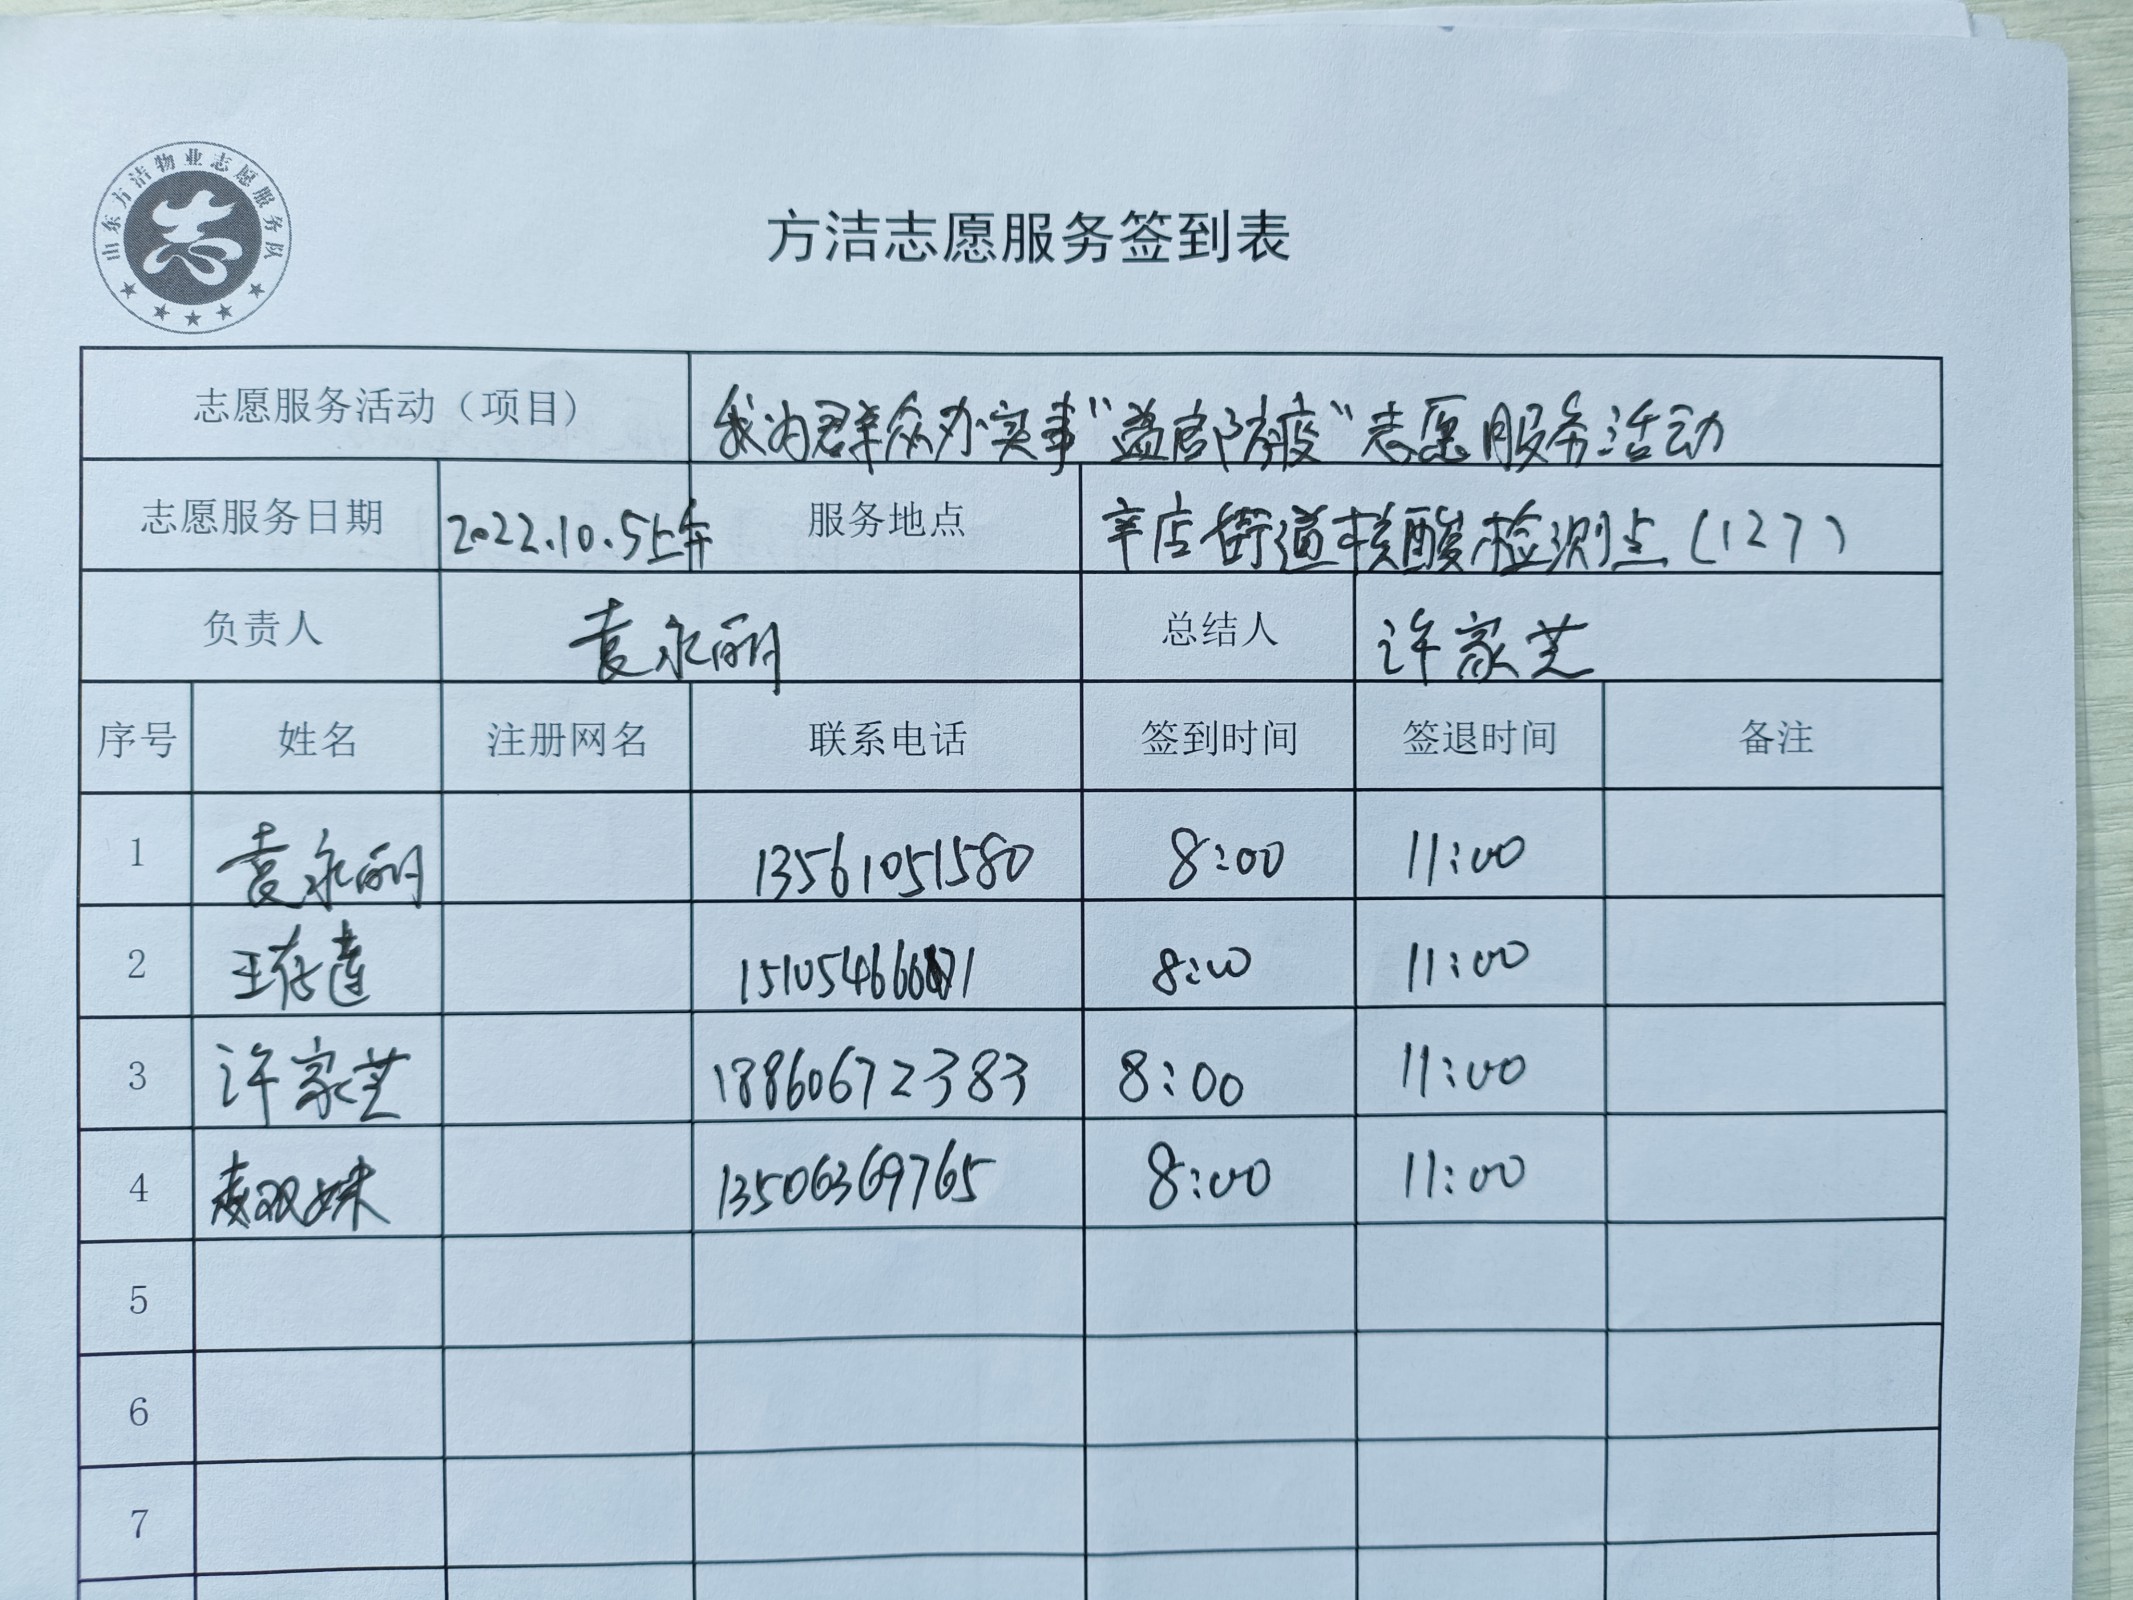 山东方洁物业志愿服务队
方洁志愿服务签到表
志愿服务活动（项目） 我为群众办实事“益启防疫”志愿服务活动
志愿服务日期 2022.10.5上午 服务地点 辛店街道核酸检测点(127)
负责人 袁永丽 总结人 许家芝
序号 姓名 注册网名 联系电话 签到时间 签退时间 备注
1 袁永丽 13561051580 8:00 11:00
2 王存莲 8:00 11:00
3 许家芝 18860672383 8:00 11:00
4 双妹 13506369765 8:00 11:00
5
6
7